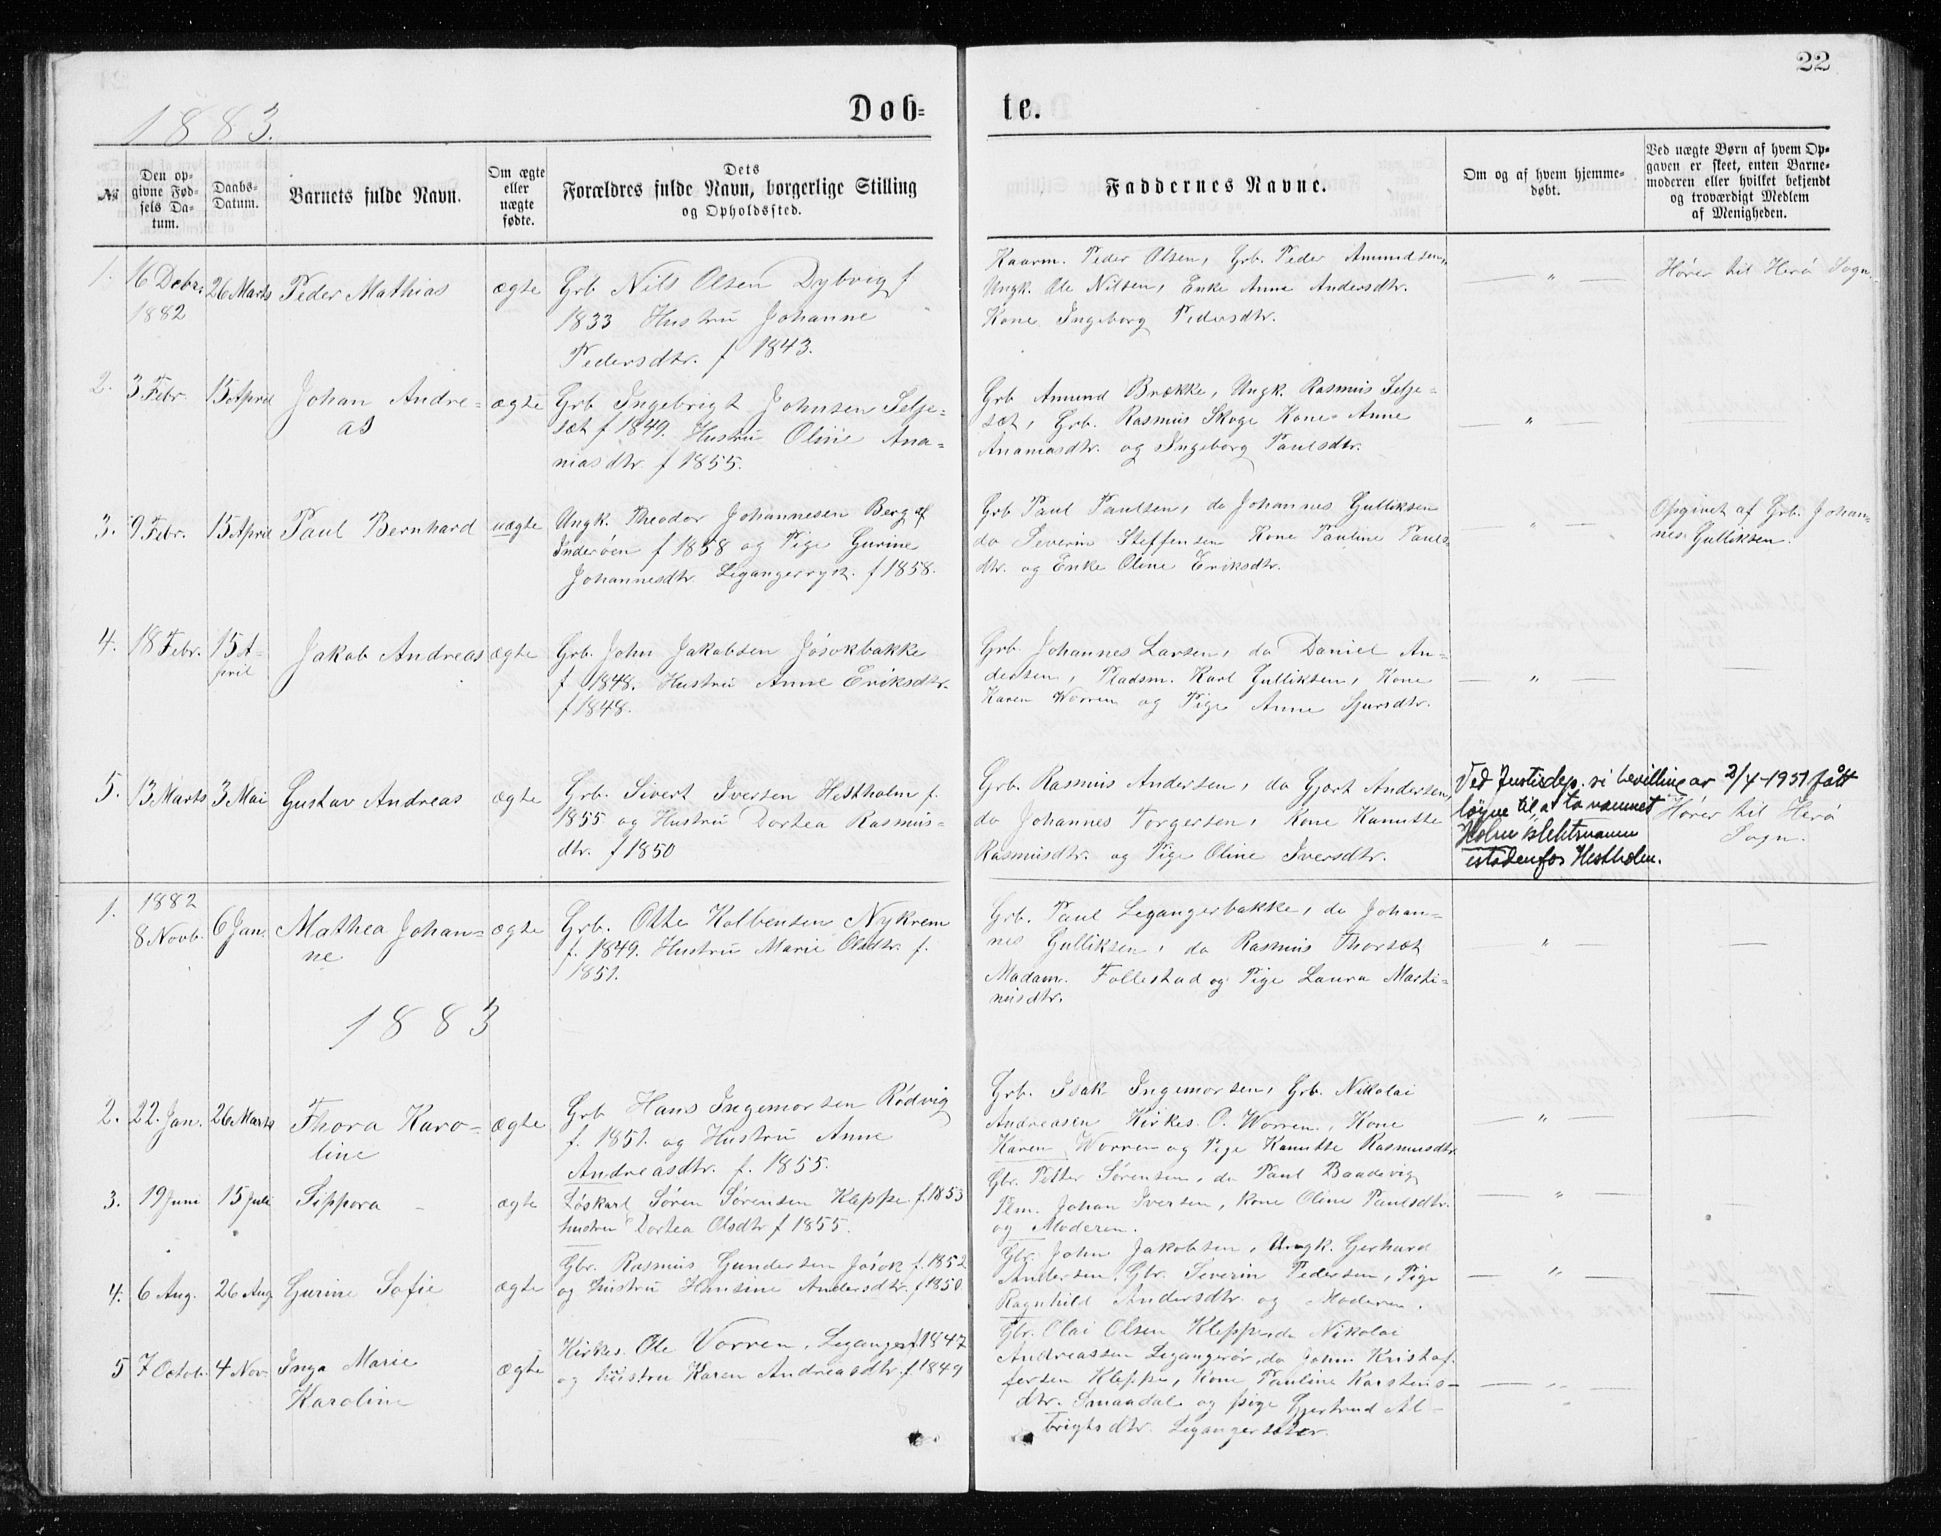 22
Døb- te.
1883.
№
Den opgivne Fødsels Datum.
Daabs-Datum.
Barnets fulde Navn.
Om ægte eller uægte fødte.
Dets Forældres fulde Navn, borgerlige Stilling og Opholdssted.
Faddernes Navne.
Om og af hvem hjemmedøbt.
Ved uægte Børn af hvem Opgaven er skeet, enten Barnemoderen eller hvilket bekjendt og troværdigt Medlem af Menigheden.
1. 16 Decbr. 26 Marts Peder Mathias ægte Grb. Nils Olsen Dybvig f
1882 1833 Hustru Johanne
Pedersdtr. f 1843.
Kaarm. Peder Olsen, Grb. Peder Amundsen,
Ungk. Ole Nilsen, Enke Anne Andersdtr.
Kone Ingeborg Pedersdtr.
— " —
Hører til Herø Sogn
2. 3 Febr. 15 April Johan Andre- ægte Grb. Ingebrigt Johnsen Selje-
as sæt f 1849. Hustru Oline Ana-
niasdtr. f 1855.
Grb. Amund Brække, Ungk. Rasmus Selje-
sæt, Grb. Rasmus Skoge Kone Anne
Ananiasdtr. og Ingeborg Paulsdtr.
— " —
3. 9 Febr. 15 April Paul Bernhard uægte Ungk. Theodor Johannesen Berg af
Inderøen f 1858 og Pige Gurine
Johannesdtr. Legangerryst. f 1858.
Grb. Paul Paulsen, do Johannes Gulliksen
do Severin Steffensen Kone Pauline Pauls-
dtr. og Enke Oline Eriksdtr.
— " —
Opgivet af Grb. Johan-
nes Gulliksen.
4. 18 Febr. 15 A- Jakob Andreas ægte Grb. John Jakobsen Jøsokbakke
pril f 1848. Hustru Anne Eriksdtr.
f 1848.
Grb. Johannes Larsen, do Daniel An-
dersen, Pladsm. Karl Gulliksen, Kone
Karen Worren og Pige Anne Sjursdtr.
— " —
5. 13 Marts 3 Mai Gustav Andreas ægte Grb. Sivert Iversen Hestholm f.
1855 og Hustru Dortea Rasmus-
dtr. f 1850
Grb. Rasmus Andersen, do Gjort Andersen,
do Johannes Torgersen, Kone Kanutte
Rasmusdtr. og Pige Oline Iversdtr.
Ved Justisdep. si bevilling av 2/4-1951 fått
løyve til å ta namnet
Holm slektsnamn
istadenfor Hestholm.
Hører til Herø
Sogn.
1. 1882
8 Novb. 6 Jan. Mathea Johan- ægte Grb. Otte Kolbensen Nykrem
ne f. 1849. Hustru Marie Olsdtr. f.
1851.
Grb. Paul Legangerbakke, do Johan-
nes Gulliksen, do Rasmus Thorsæt
Madam. Follestad og Pige Laura Marti-
nusdtr.
— " —
1883
2. 22. Jan. 26 Marts Thora Karo- ægte Grb. Hans Ingemorsen Rødvig
line f. 1851. og Hustru Anne
Andreasdtr. f. 1855.
Grb. Isak Ingemorsen, Grb. Nikolai
Andreasen Kirkes. O. Worren, Kone
Karen Worren og Pige Kanutte Rasmusdtr.
— " —
3. 19 Juni 15 Juli Sippora ægte Løskarl Søren Sørensen Kleppe f. 1853
hustru Dortea Olsdtr f 1855.
Gbr. Petter Sørensen, do Paul Baadsvig
Plm. Johan Iversen, Kone Oline Paulsdtr.
og Moderen.
— " —
4. 6 Aug. 26 Aug Gurine Sofie ægte Gbr. Rasmus Gundersen Jøsok f. 1852
og Hustru Hansine Andersdtr. f 1850
Gbr. John Jakobsen, Ungk. Gerhard
Andersen, Gbr. Severin Pedersen, Pige
Ragnhild Andersdtr. og Moderen.
— " —
5 7 Octob. 4 Nov. Inga Marie ægte Kirkes. Ole Vorren, Leganger f 1847
Karoline og hustru Karen Andreasdtr. f 1849
Gbr. Olai Olsen Kleppe, do Nikolai
Andreassen Legangerør, do John Kristof-
fersen Kleppe, Kone Pauline Karstens-
dtr. Smaadal og pige Gjertrud Al-
brigtsdtr. Legangersæter.
— " —